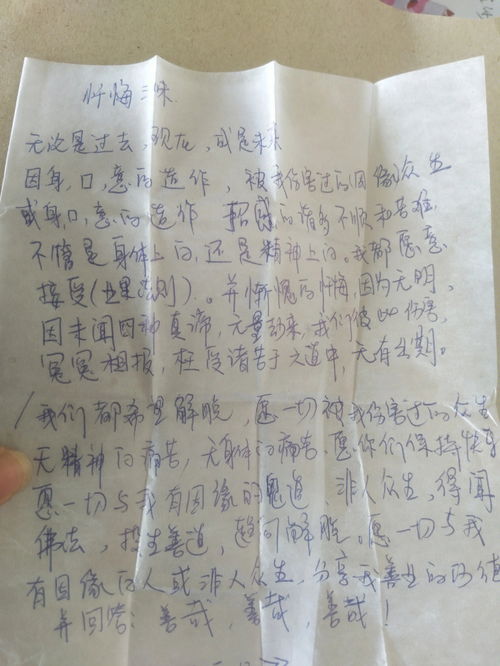 忏悔三昧
无论是过去，现在，或是未来
因身，口，意的造作，被我伤害过的因缘众生
或身，口，意的造作 招感的诸多不顺和苦难，
不管是身体上的，还是精神上的。我都愿意
接受（业果法则）。并惭愧的忏悔，因为无明，
因未闻四种真谛，无量劫来，我们彼此伤害，
冤冤相报，枉受诸苦于六道中，无有出期。
我们都希望解脱，愿一切被我伤害过的众生
无精神的病苦，无身体的病苦，愿你们保持快乐
愿一切与我有因缘的鬼道、非人众生，得闻
佛法，投生善道，趣向解脱。愿一切与我
有因缘的人或非人众生，分享我善业的功德
并回答：善哉，善哉，善哉！